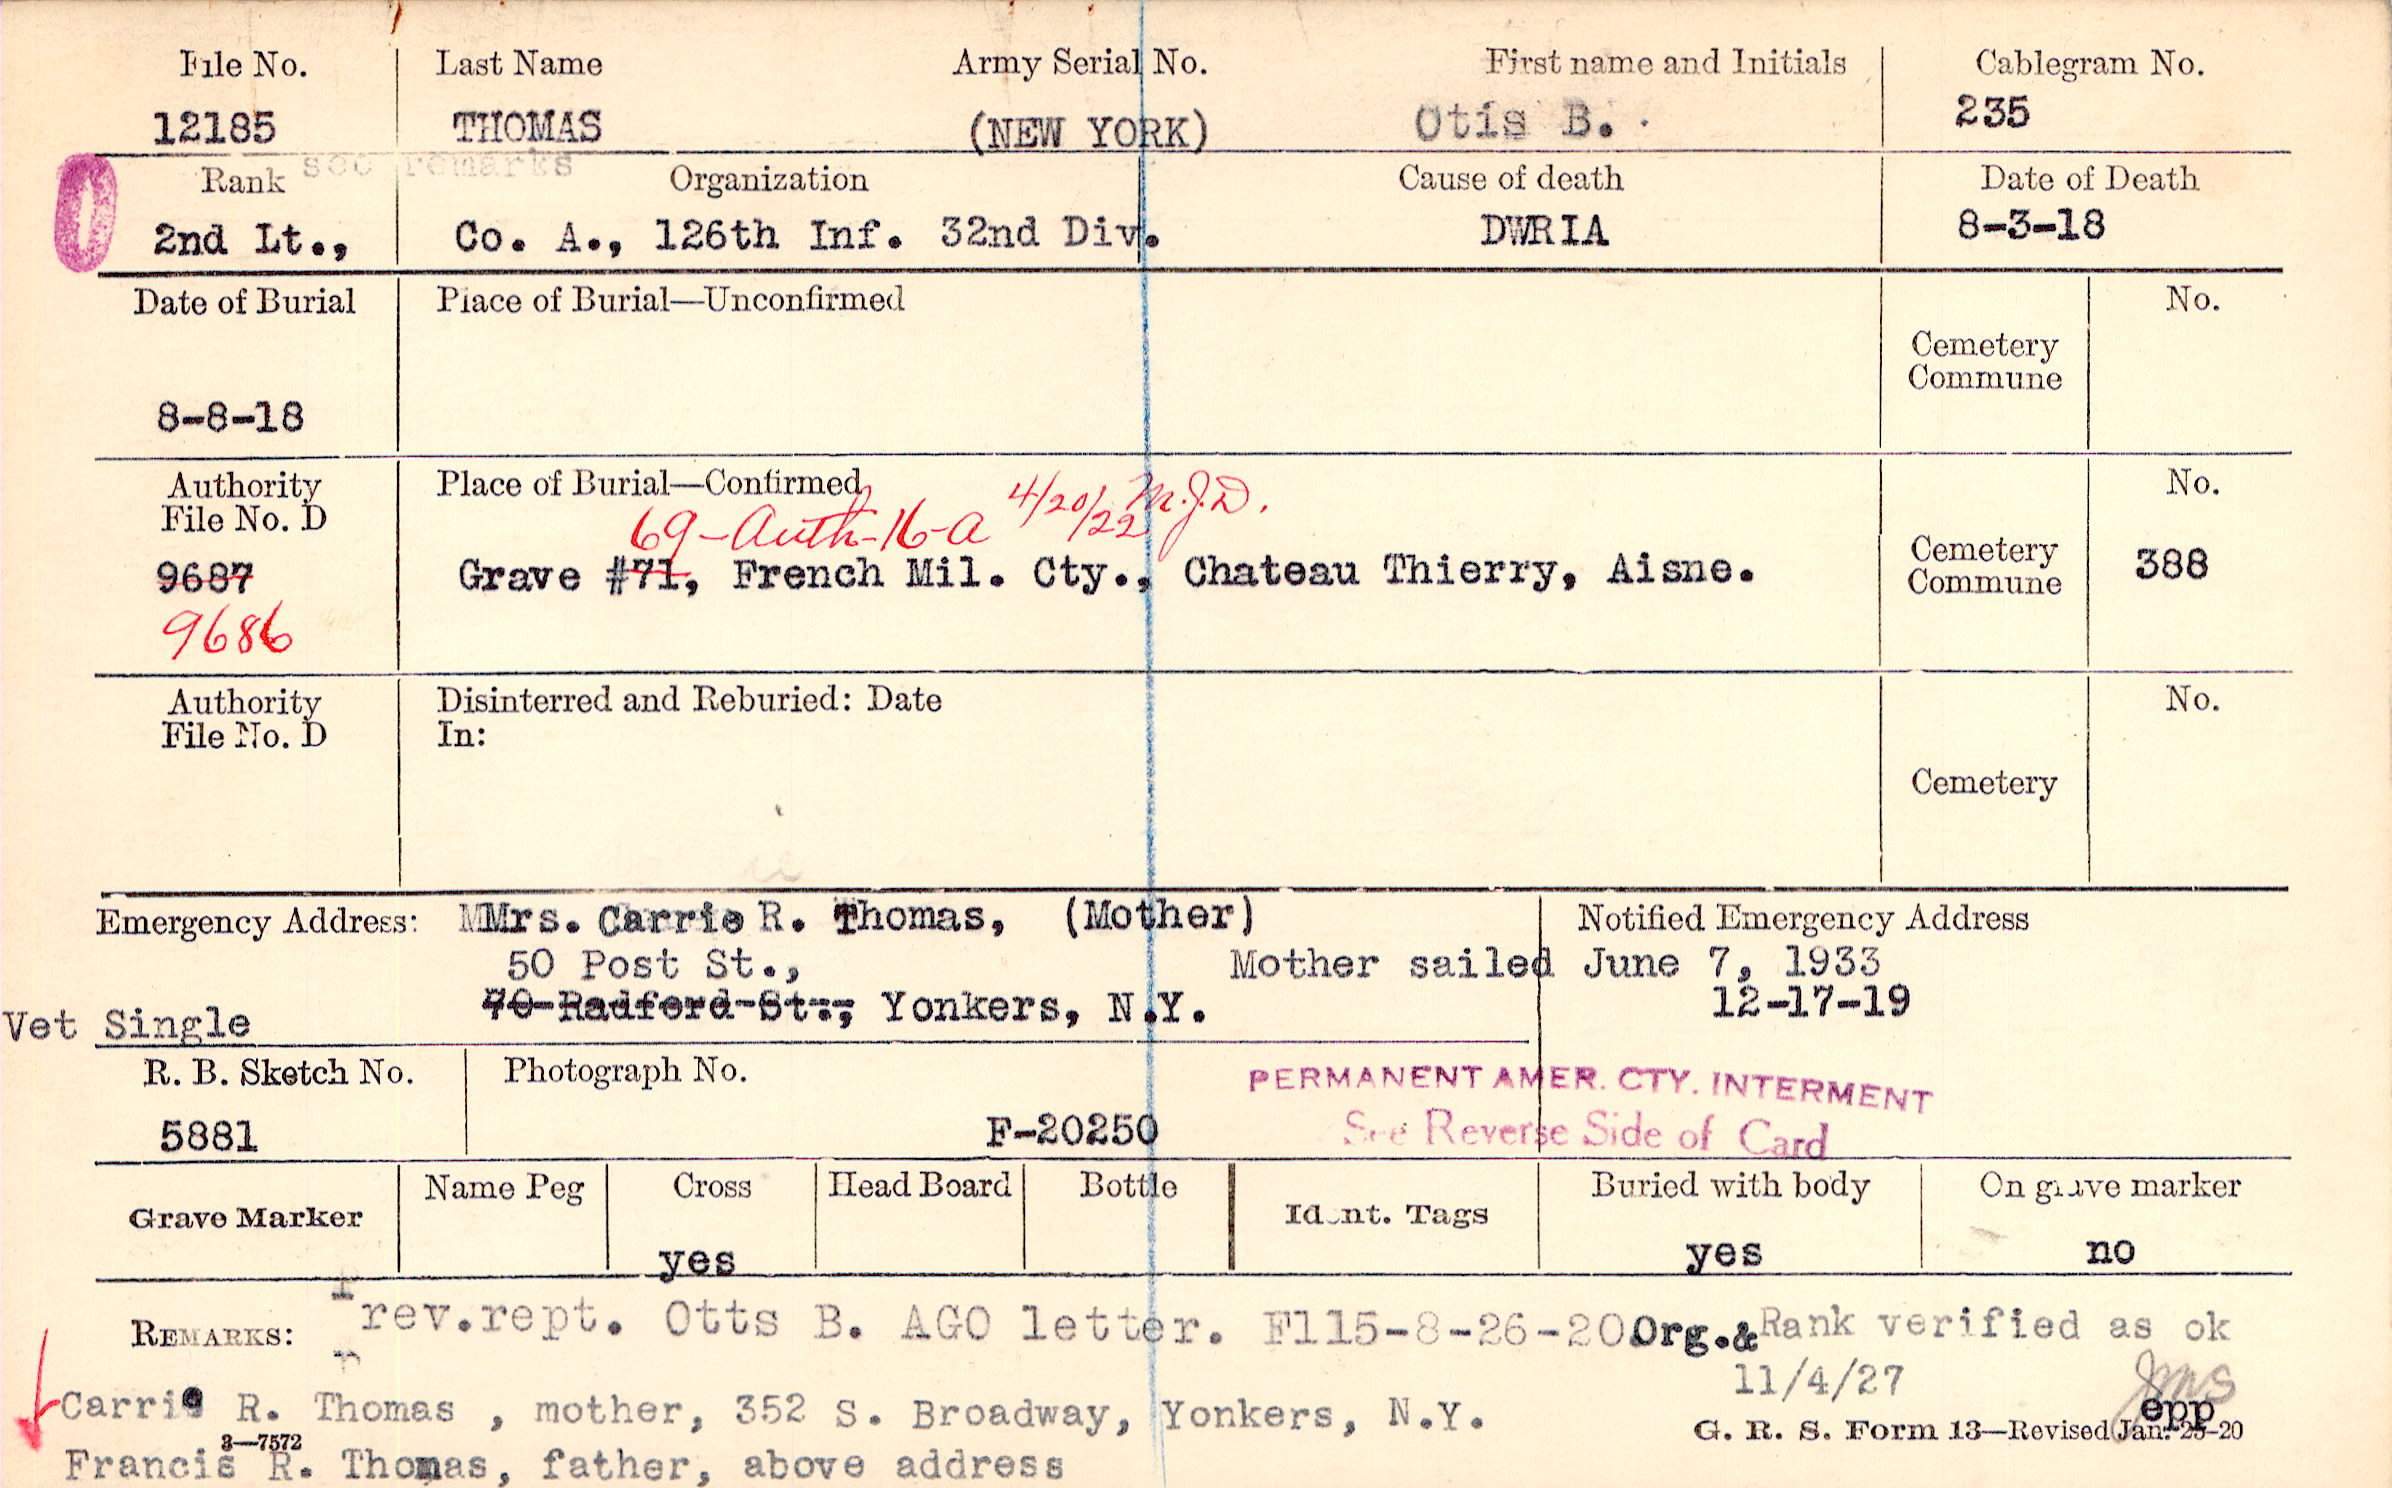 File No. Last Name Army Serial No. First name and Initials Cablegram No.
12185 THOMAS (NEW YORK) Otis B. 235
see remarks
Rank Organization Cause of death Date of Death
2nd Lt., Co. A., 126th Inf. 32nd Div. DWRIA 8-3-18
Date of Burial Place of Burial—Unconfirmed No.
Cemetery
Commune
8-8-18
Authority Place of Burial—Confirmed No.
File No. D
69-Auth-16-A 4/20/22 M.J.D.
9687 Grave #71, French Mil. Cty., Chateau Thierry, Aisne. Cemetery Commune 388
9686
Authority Disinterred and Reburied: Date No.
File No. D In:
Cemetery
Emergency Address: MMrs. Carrie R. Thomas, (Mother) Notified Emergency Address
50 Post St., Mother sailed June 7, 1933
70 Radford St., Yonkers, N.Y. 12-17-19
Vet Single
R. B. Sketch No. Photograph No.
PERMANENT AMER. CTY. INTERMENT
5881 F-20250 See Reverse Side of Card
Grave Marker Name Peg Cross Head Board Bottle Ident. Tags Buried with body On grave marker
yes yes no
REMARKS: Prev.rept. Otts B. AGO letter. F115-8-26-20. Org.& Rank verified as ok
11/4/27
Carrie R. Thomas , mother, 352 S. Broadway, Yonkers, N.Y.
epp
3—7572 G. R. S. Form 13—Revised Jan. 25-20
Francis R. Thomas, father, above address